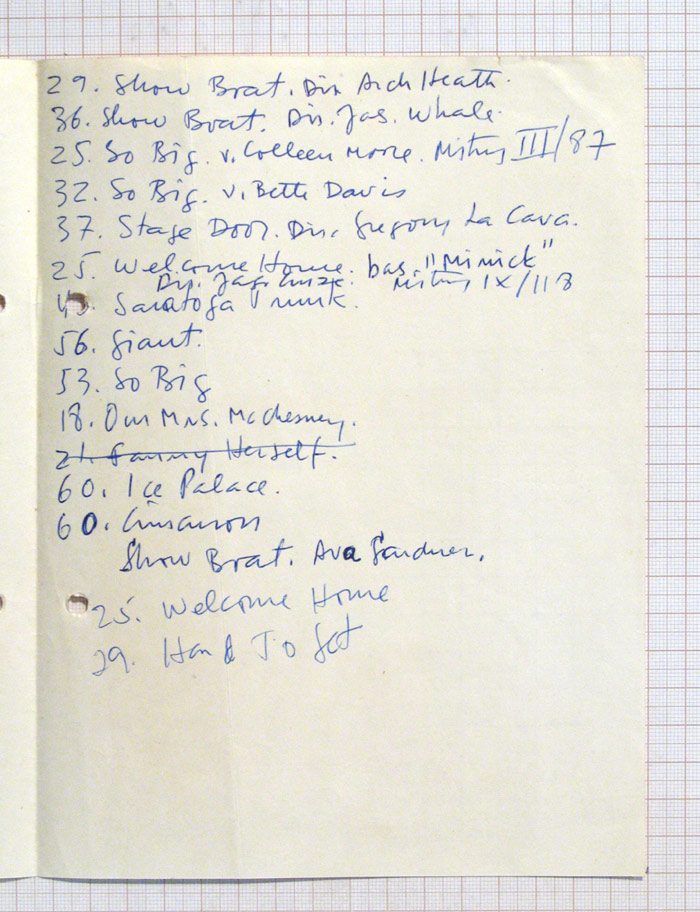 29. Show Boat. Dir. Arch Heath.
36. Show Boat. Dir. Jas. Whale.
25. So Big. v. Colleen Moore. Mstrs III/87
32. So Big. v. Bette Davis
37. Stage Door. Dir. Gregory La Cava.
25. Welcome Home. bas. "Minick"
Dir. Jas. Cruze. IX/118
Saratoga Trunk.
56. Giant.
53. So Big
18. Our Mrs. McChesney.
21. Fanny Herself.
60. Ice Palace.
60. Cimarron
Show Boat. Ava Gardner.
25. Welcome Home
29. Hard To Get